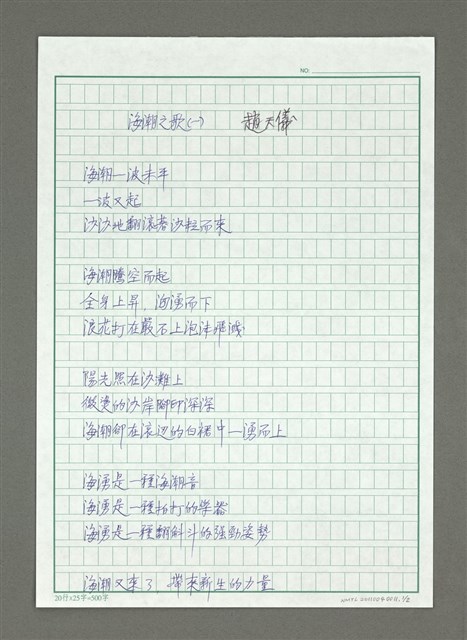 NO:
海潮之歌(一) 趙天儀
海潮一波未平
一波又起
沙沙地翻滾著沙粒而來
海潮騰空而起
全身上昇，洶湧而下
浪花打在巖石上泡沫飛濺
陽光照在沙灘上
微燙的沙岸腳印深深
海潮卻在滾邊的白裙中一湧而上
海湧是一種海潮音
海湧是一種拍打的樂器
海湧是一種翻斜斗的強勁姿勢
海潮又來了 帶來新生的力量
20行×25字=500字